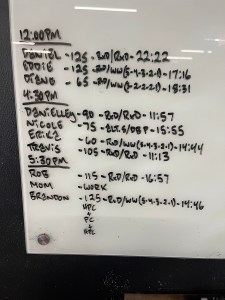 12:00PM
DANIEL - 125 - RxD/RxD - 22:22
EDDIE - 125 - RxD/WW(5-4-3-2-1) - 17:16
DIANO - 65 - RxD/WW(3-2-2-2-1) - 18:31
4:30PM
DANIELLEY - 90 - RxD/RxD - 11:57
NICOLE - 75 - 15:55
ERIKA - 60 - RxD/WW(5-4-3-2-1) - 14:44
TRAVIS - 105 - RxD/RxD - 11:13
5:30PM
ROB - 115 - RxD/RxD - 16:57
MOM - WORK
BRANDON - 125 - RxD/WW(5-4-3-2-1) - 14:46
HPC
+
PC
+